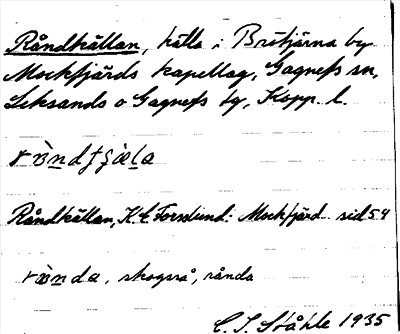 Råndkällan, källa i Brötjärna by
Mockfjärds kapellag, Gagnefs sn,
Leksands o Gagnefs tg, Kopp. l.
Råndkällan, K. E. Forslund: Mockfjärd sid 54
skogsrå, rånda
C. I. Ståhle 1935